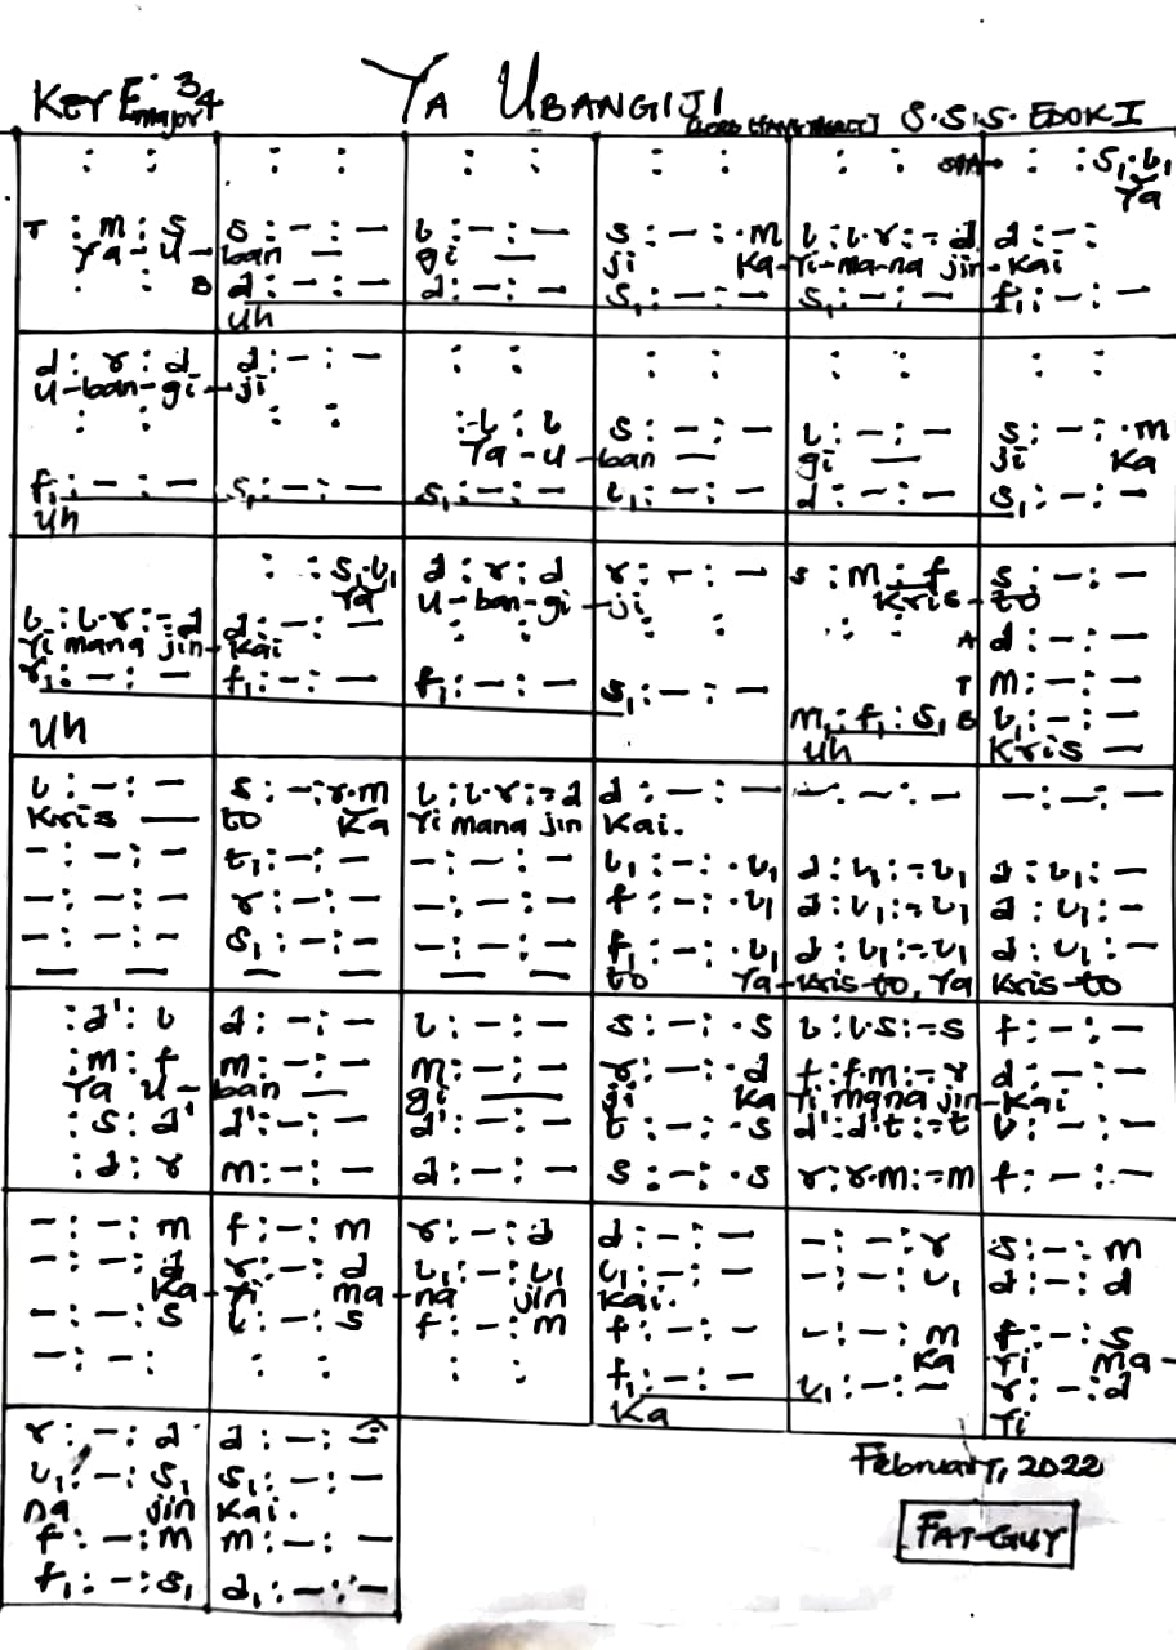 KEY E major 3/4 YA UBANGIJI [LORD HAVE MERCY] S.S.S. EDOKI
: : | : : | : : | : : | : : S/A→ | : : s₁.l₁
Ya
T : m : s | s : – : – | l : – : – | s : – : – .m | l : l.r : – d | d : – :
Ya - u - ban — gi — ji Ka - Yi - ma - na jin - kai
: : B | d : – : – | d : – : – | s₁ : – : – | s₁ : – : – | f₁ : – : –
Uh
d : r : d | d : – : – | : : | : : | : : | : :
u - ban - gi - ji
: : | : : | : l : l | s : – : – | l : – : – | s : – : – .m
Ya - u - ban — gi — ji Ka
f₁ : – : – | s₁ : – : – | s₁ : – : – | l₁ : – : – | d : – : – | s₁ : – : –
Uh
: : s₁.l₁ | d : r : d | r : – : – | s : m : f | s : – : –
Ya u - ban - gi - ji Kris - to
l : l.r : – d | d : – : – | : : | : : | : : A | d : – : –
Yi mana jin - kai
r₁ : – : – | f₁ : – : – | f₁ : – : – | s₁ : – : – | T m : – : –
m₁ : f₁ : s₁ B | l₁ : – : –
Uh Uh Kris —
l : – : – | s : – : r.m | l : l.r : – d | d : – : – | – : – : – | – : – : –
Kris — to Ka Yi mana jin Kai.
– : – : – | t₁ : – : – | – : – : – | l₁ : – : .l₁ | d : l₁ : – l₁ | d : l₁ : –
– : – : – | r : – : – | – : – : – | f : – : .l₁ | d : l₁ : – l₁ | d : l₁ : –
– : – : – | s₁ : – : – | – : – : – | f₁ : – : .l₁ | d : l₁ : – l₁ | d : l₁ : –
— — — — — — to Ya - Kris - to, Ya Kris - to
: d' : l | d : – : – | l : – : – | s : – : .s | l : l.s : – s | f : – : –
: m : f | m : – : – | m : – : – | r : – : .d | f : f.m : – r | d : – : –
Ya u - ban — gi — ji Ka Yi mana jin - kai
: s : d' | d' : – : – | d' : – : – | t : – : .s | d' : d't : – t | l : – : –
: d : r | m : – : – | d : – : – | s : – : .s | r : r.m : – m | f : – : –
– : – : m | f : – : m | r : – : d | d : – : – | – : – : r | s : – : m
– : – : d | r : – : d | l₁ : – : l₁ | l₁ : – : – | – : – : l₁ | d : – : d
Ka - Yi ma - na jin Kai.
– : – : s | l : – : s | f : – : m | f : – : – | – : – : m | f : – : s
Ka Yi ma -
– : – : | : : | : : | f₁ : – : – | l₁ : – : – | r : – : d
Ka Yi
r : – : d | d : – : –
l₁ : – : s₁ | s₁ : – : –
na jin Kai.
f : – : m | m : – : –
f₁ : – : s₁ | d₁ : – : –
February, 2022
FAT-GUY